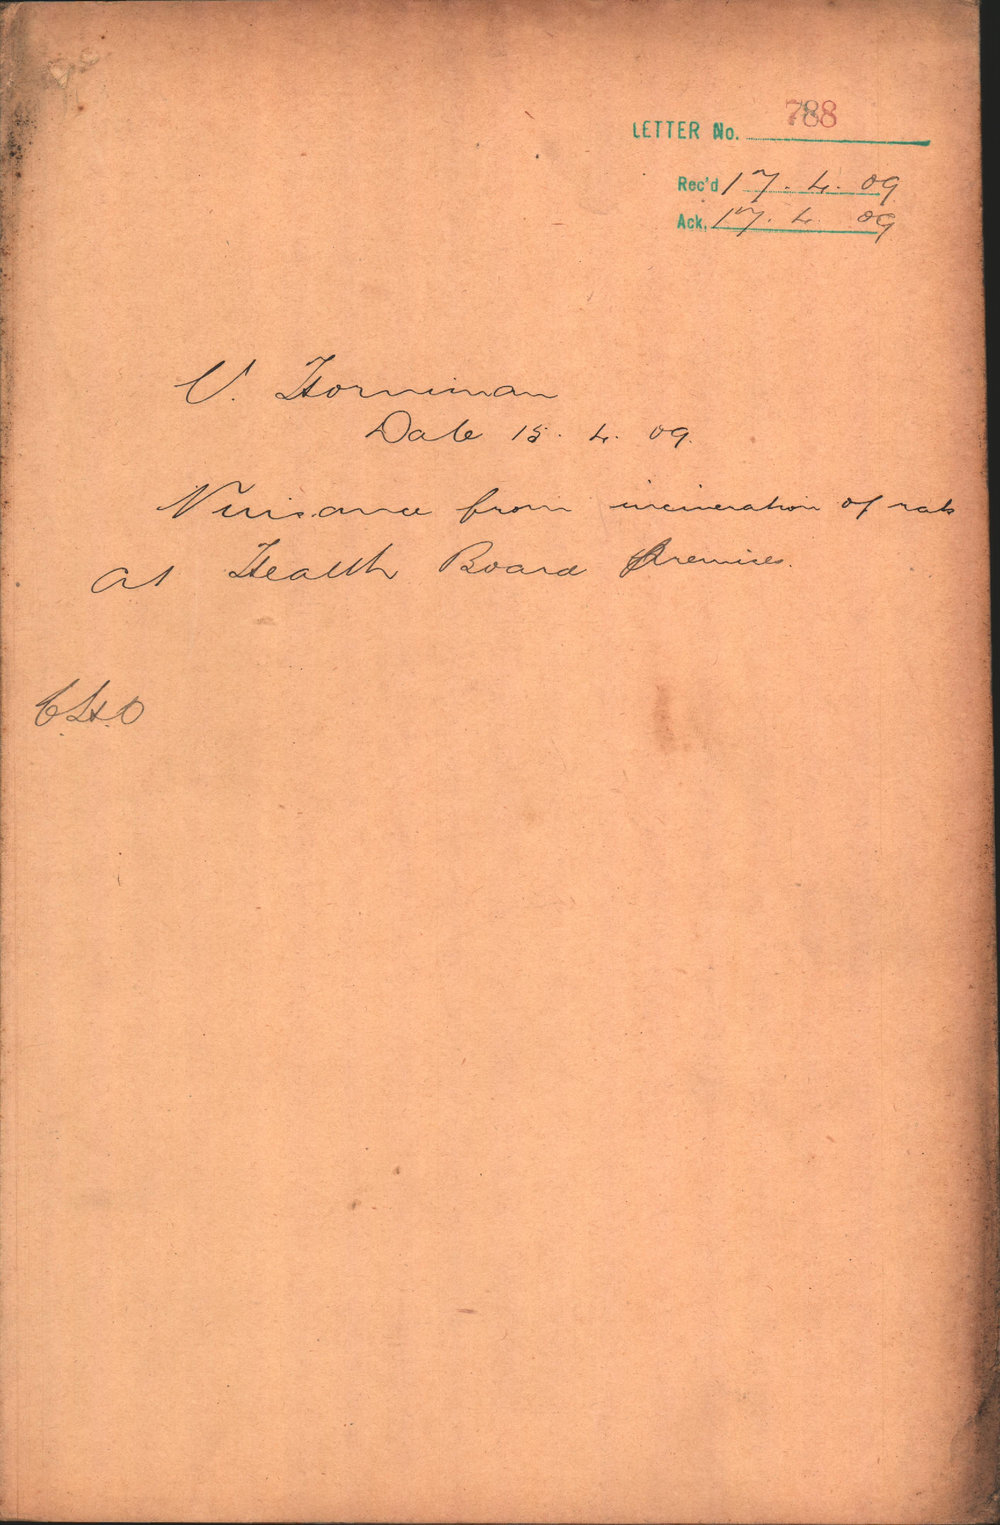 LETTER No. 788
Rec'd 17. 4. 09
Ack. 17. 4. 09
V. Horniman
Date 15. 4. 09.
Nuisance from incineration of rats
at Health Board Premises.
C.H.O